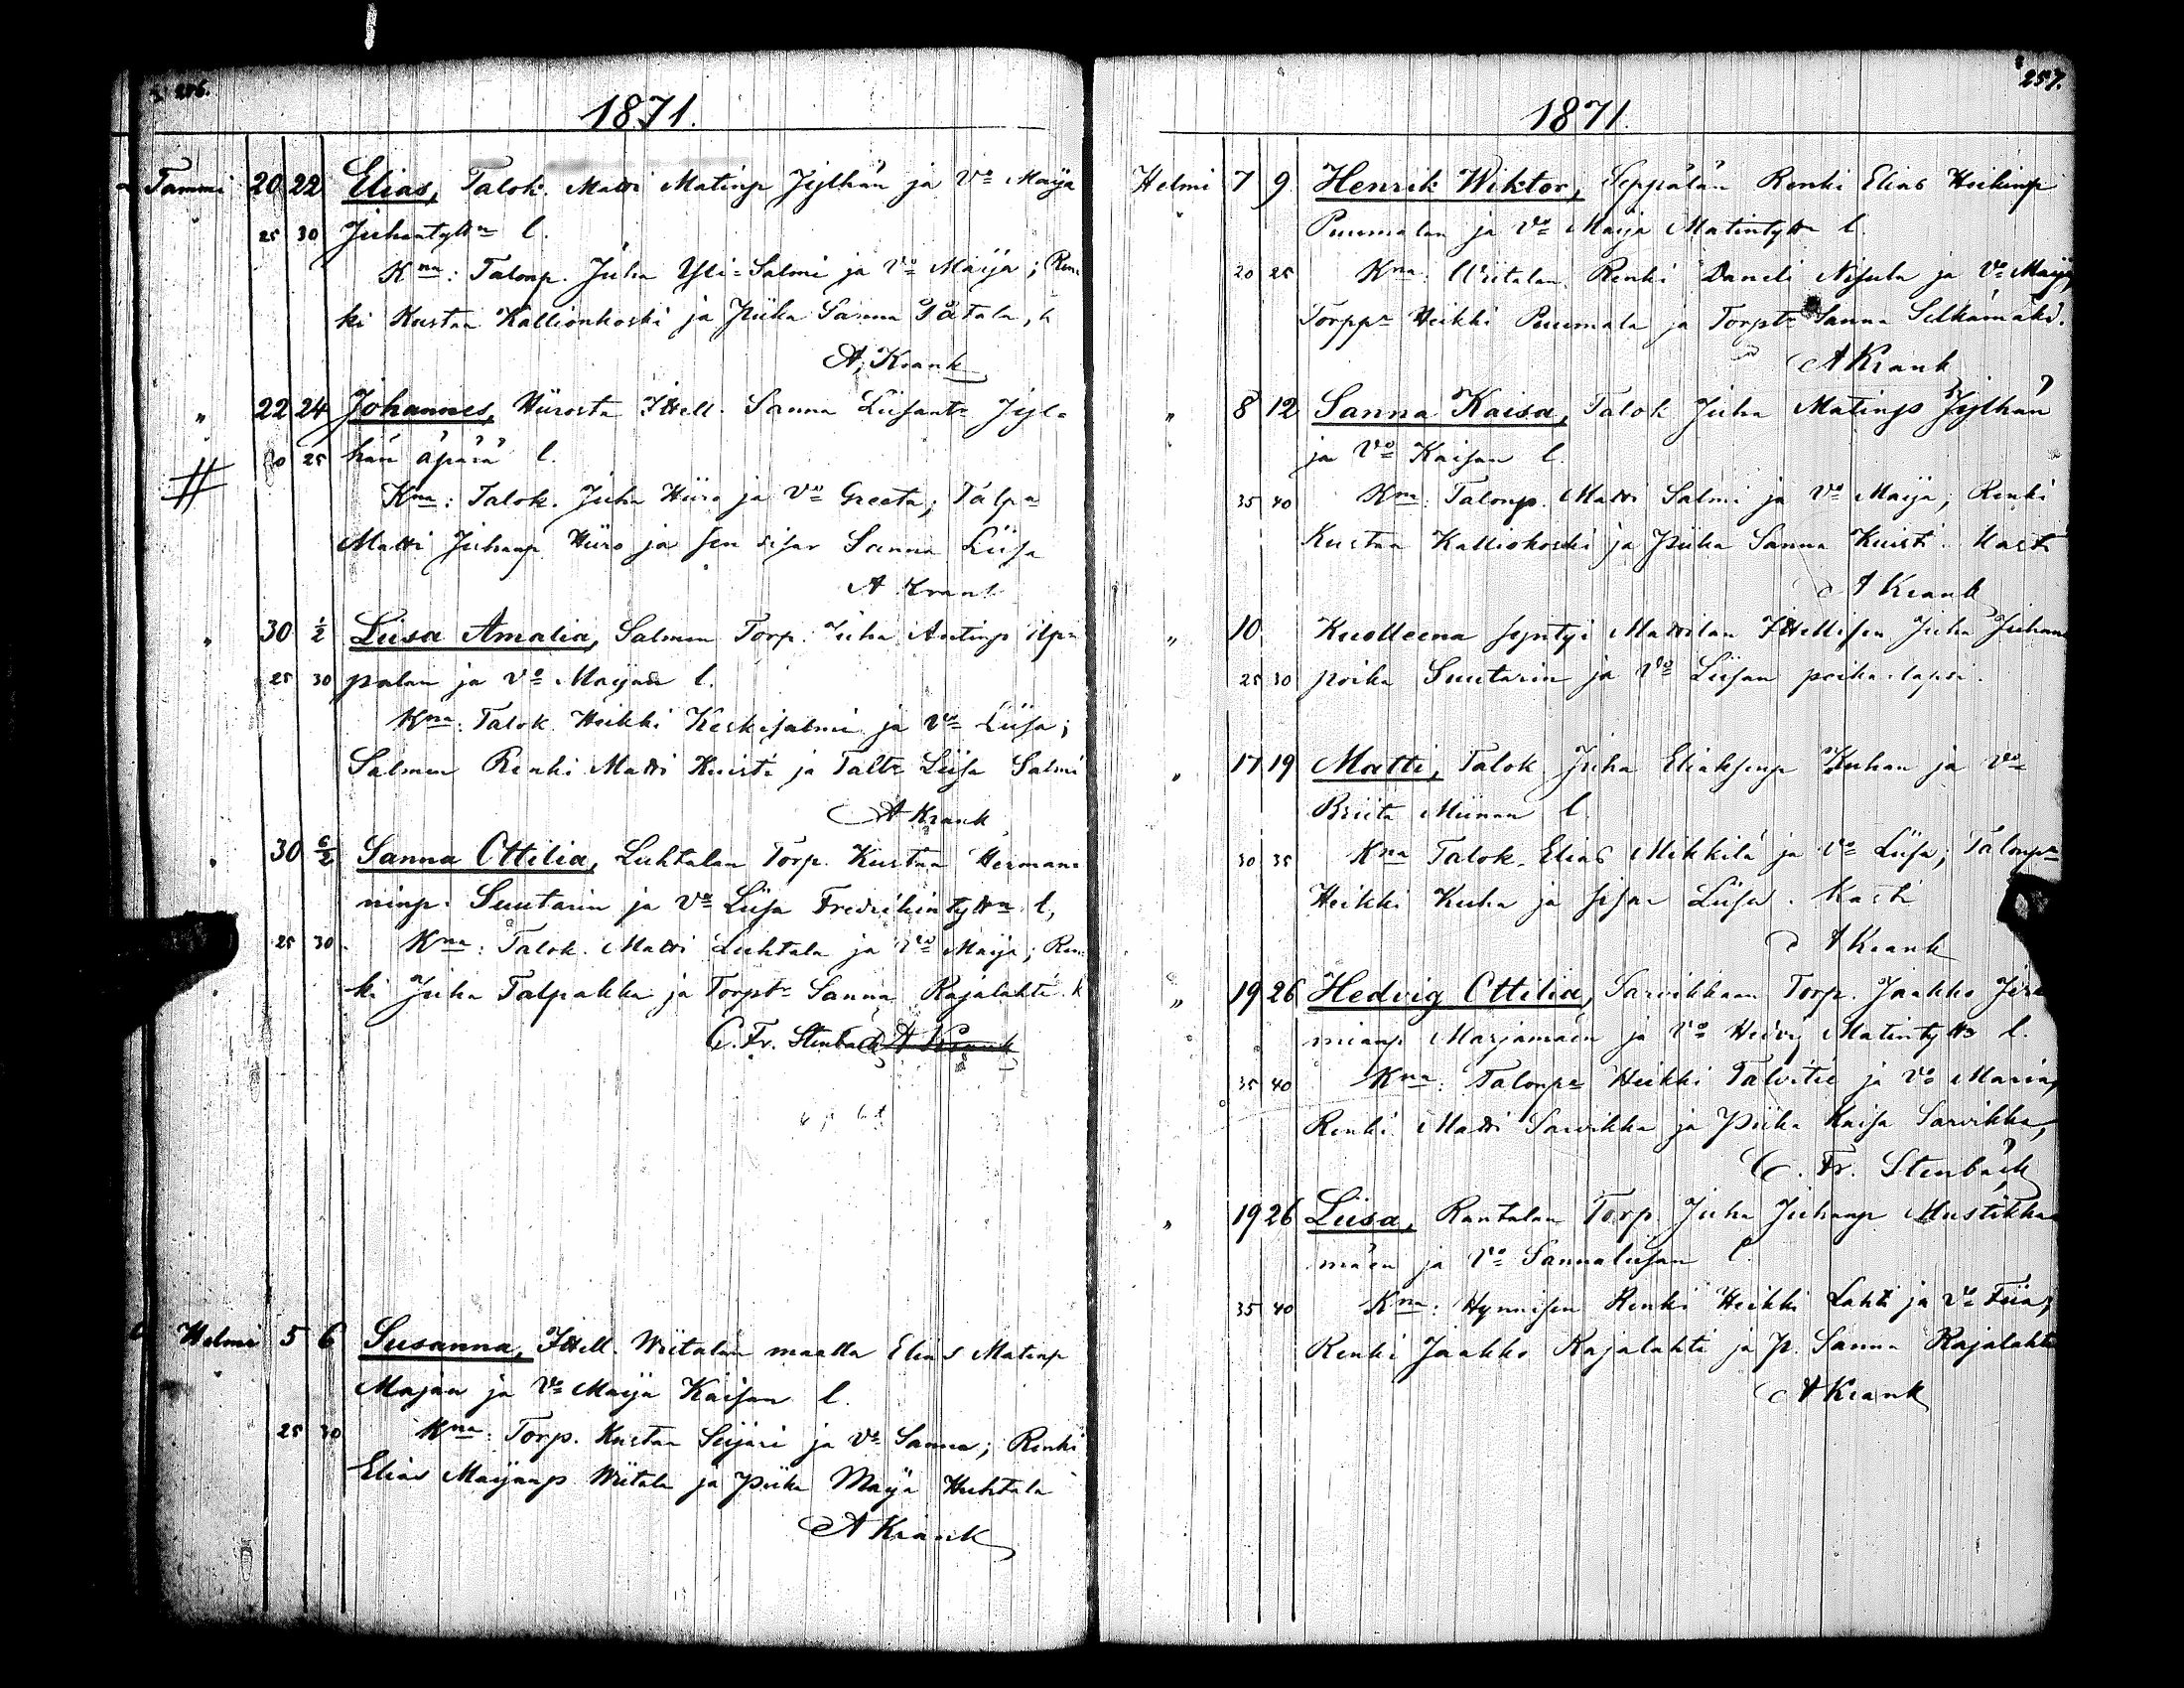 256.
1871.
Tammi 20 22 Elias, Talok. Matti Matinp Jylhän ja Vo Maija
" 25 30 Juhantyttn l.
Kna: Talonp. Juha Yli=Salmi ja Vo Maija; Ren=
ki Kustaa Kallionkoski ja Piika Sanna
A. Krank
" 22 24 Johannes, Hiirosta Ittell. Sanna Liisant Jyl=
# 20 25 hän äpärä l.
Kna: Talok. Juha Hiiro ja Vo Greeta; Talp
Matti Juhanp Hiiro ja sen sisar Sanna Liisa
A Krank
" 30 1/2 Liisa Amalia, Salmen Torp. Juha Antinp
25 30 palan ja Vo Maijan l.
Kna: Talok. Heikki Keskisalmi ja Vo Liisa;
Salmen Renki Matti Kuisti ja Taltr Liisa Salmi
A Krank
" 30 6/2 Sanna Ottilia, Luhtalan Torp. Kustaa Herman=
ninp. Suutarin ja Vo Liisa Fredrikintyttn l,
25 30 Kna: Talok. Matti Luhtala ja Vo Maija; Ren=
ki Juha Talpakka ja Torptr Sanna Rajalahti. k
C. Fr. Stenbäck A Krank
Helmi 5 6 Susanna, Ittell. Wiitalan maalla Elias Matinp
" Majan ja Vo Maija Kaisan l.
25 30 Kna: Torp. Kustaa Seijari ja Vo Sanna; Renki
Elias Maijanp Wiitala ja Piika Maija Huhtala
A Krank
257.
1871.
Helmi 7 9 Henrik Wiktor, Seppälän Renki Elias Heikinp
" Puumalan ja Vo Maija Matintyttn l.
20 25 Kna: Wiitalan Renki Daneli Nisula ja Vo Maija,
Torppr Heikki Puumala ja Torptr Sanna Selkämäki.
A Krank
" 8 12 Sanna Kaisa, Talok Juha Matinp Jylhän
ja Vo Kaisan l.
35 40 Kna: Talonp. Matti Salmi ja Vo Maija; Renki
Kustaa Kalliokoski ja Piika Sanna Kuisti. kasti
A Krank
" 10 Kuolleena syntyi Mattilan Ittellisen Juha Juhan
25 30 poika Suutarin ja Vo Liisan poika-lapsi.
" 17 19 Matti, Talok Juha Eliaksenp Kuhan ja Vo
Briita Miinan l.
30 35 Kna Talok. Elias Mikkilä ja Vo Liisa; Talonpr
Heikki Kuha ja sisar Liisa. Kasti
A Krank
" 19 26 Hedvig Ottilia, Sarvikkaan Torp. Jaakko Jere
mianp Marjamäen ja Vo Hedvig Matintyttn l.
35 40 Kna: Talonpr Heikki Talvitie ja Vo Maria,
Renki Matti Sarvikka ja Piika Kaisa Sarvikka,
C. Fr. Stenbäck
" 19 26 Liisa, Rantalan Torp. Juha Juhanp Mustikka
mäen ja Vo Sannaliisan l
35 40 Kna: Hynnisen Renki Heikki Lahti ja Vo Fiia;
Renki Jaakko Rajalahti ja p. Sanna Rajalahti
A Krank